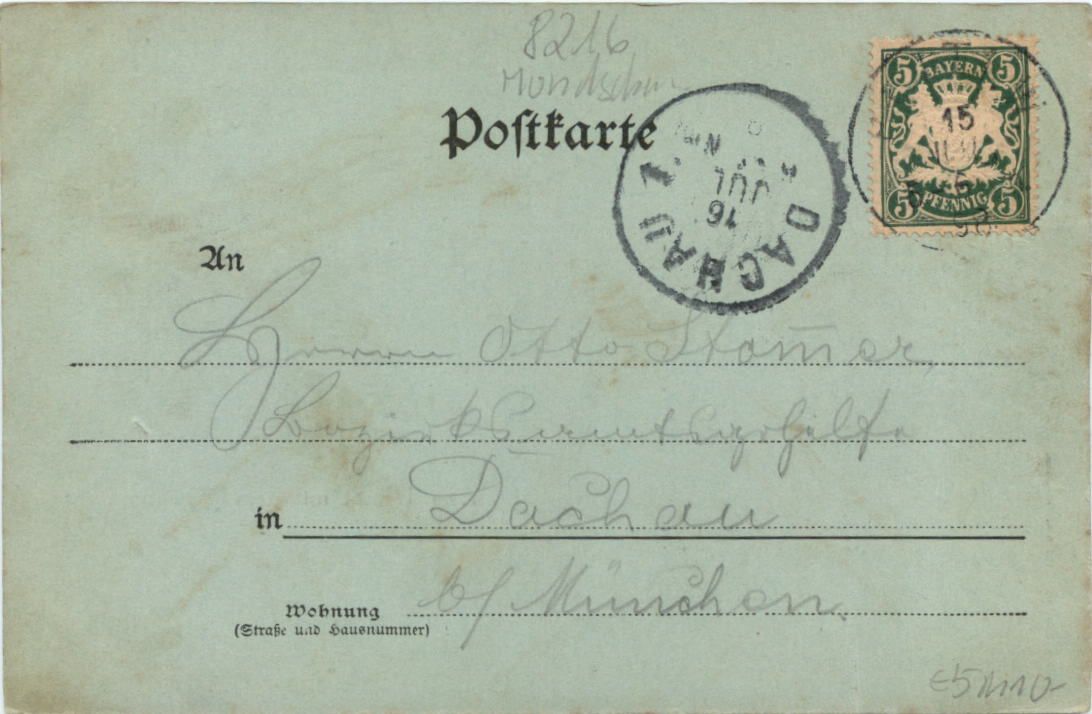 8216
Mondschein
Postkarte
5 BAYERN 5
5 PFENNIG 5
15
JUL
DACHAU
16
JUL
An
Herrn Otto Stommer,
Bezirksamtsgehilfe
in Dachau
Wohnung b/ München.
(Straße und Hausnummer)